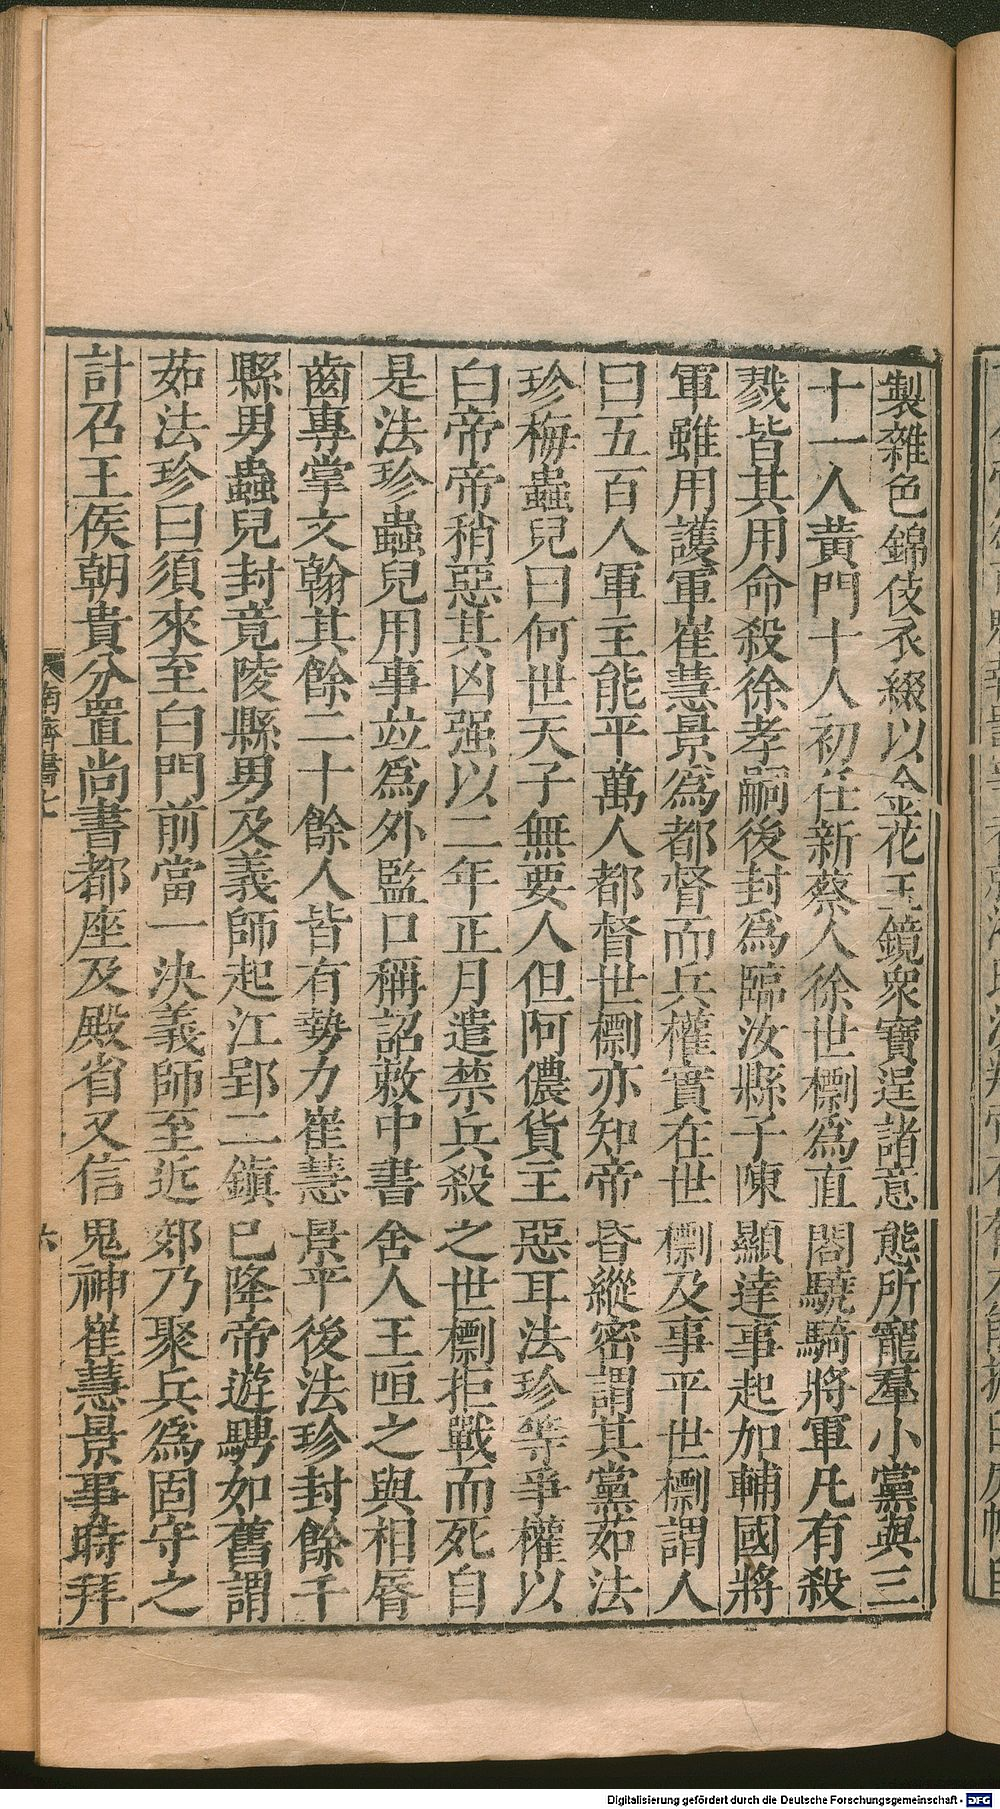 製雜色錦伎衣綴以金花玉鏡衆寶逞諸意態所寵羣小黨與三
十一人黃門十人初任新蔡人徐世檦爲直閤驍騎將軍凡有殺
戮皆其用命殺徐孝嗣後封爲臨汝縣子陳顯達事起加輔國將
軍雖用護軍崔慧景爲都督而兵權實在世檦及事平世檦謂人
曰五百人軍主能平萬人都督世檦亦知帝昏縱密謂其黨茹法
珍梅蟲兒曰何世天子無要人但阿儂貨主惡耳法珍等爭權以
白帝帝稍惡其凶强以二年正月遣禁兵殺之世檦拒戰而死自
是法珍蟲兒用事竝爲外監口稱詔敕中書舍人王咺之與相脣
齒專掌文翰其餘二十餘人皆有勢力崔慧景平後法珍封餘干
縣男蟲兒封竟陵縣男及義師起江郢二鎮已降帝遊騁如舊謂
茹法珍曰須來至白門前當一決義師至近郊乃聚兵爲固守之
計召王侯朝貴分置尚書都座及殿省又信鬼神崔慧景事時拜
南齊書七
六
Digitalisierung gefördert durch die Deutsche Forschungsgemeinschaft - DFG